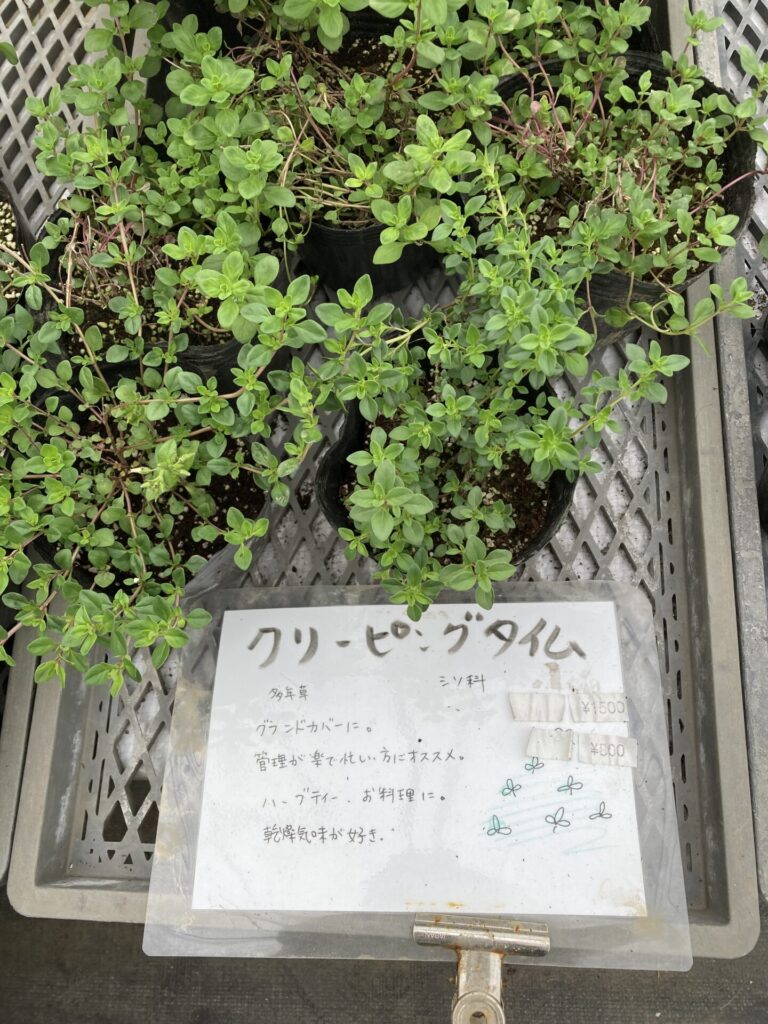 クリーピングタイム
多年草 シソ科
グランドカバーに。
管理が楽で忙しい方にオススメ。
ハーブティー、お料理に。
乾燥気味が好き。
¥1500